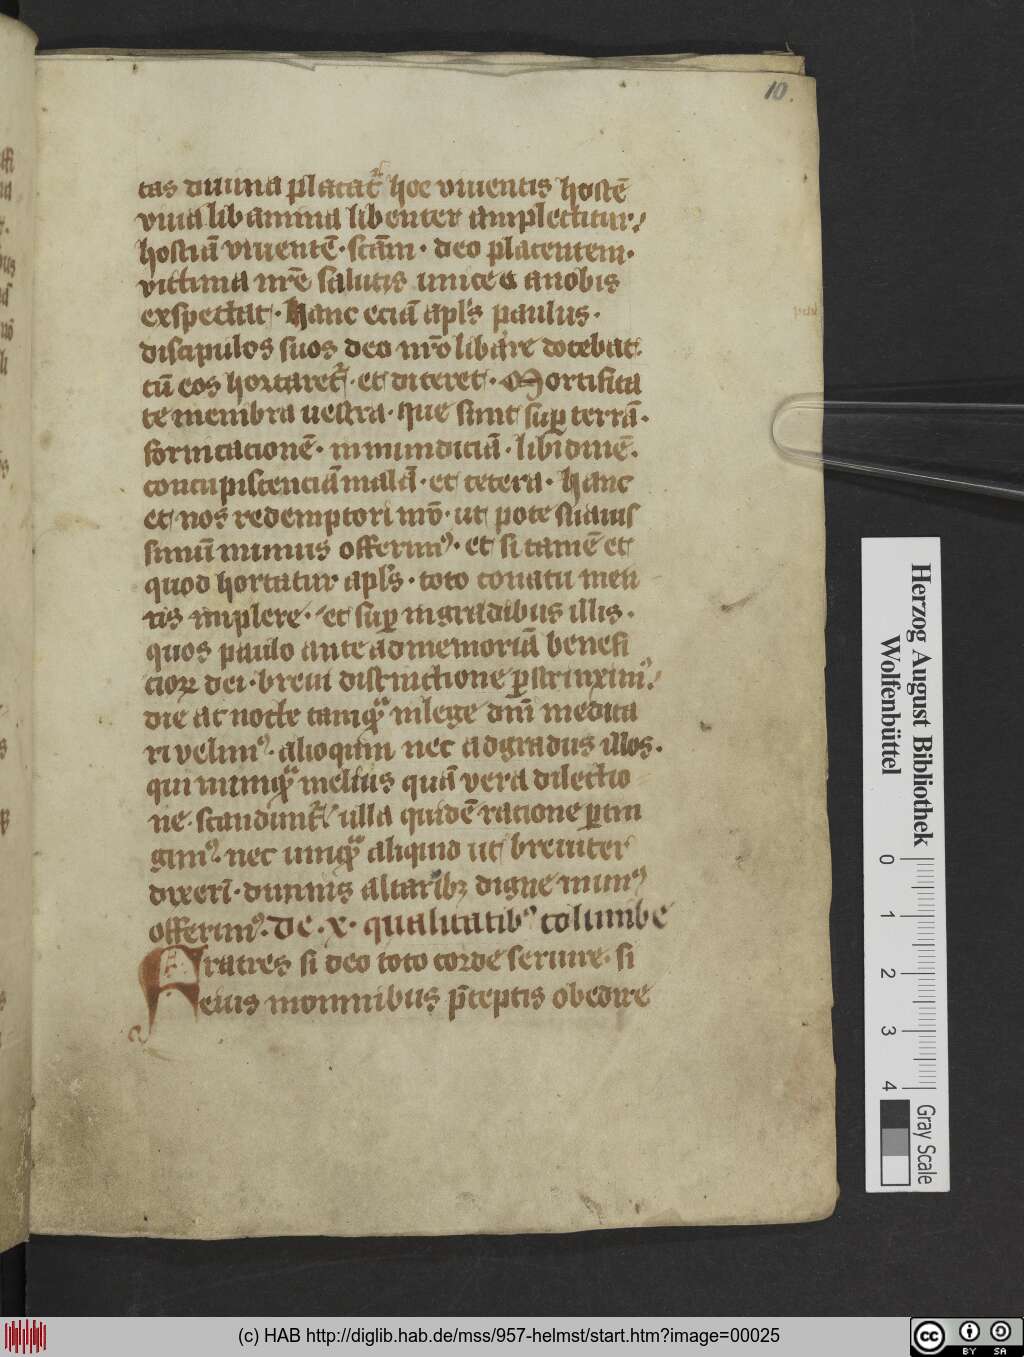 10.
tas diuina placat᷑ hoc viuentis hostē
viua lib amina libenter amplectitur.
hostiā viuentē · scām · deo placentem·
victima nr̄e salutis unicea anobis
exspectat · hanc eciā apl's paulus·
discipulos suos deo nr̄o libare docebat·
cū eos hortaret᷑ · et diceret · Mortifica
te membra uestra · que sunt sup terrā·
fornicacionē · inmundiciā · libidinē·
concupiscenciā malā · et cetera · hanc
et nos redemptori nr̄o · ut pote suauis
simū munus offerimꝰ · et si tamē et
quod hortatur apl's · toto conatu men
tis implere · et sup ingradibus illis·
quos paulo ante ad memoriā benefi
cioꝝ dei · breui distinctione ꝑstrinximꝰ·
die ac nocte tamqᷓ inlege dn̄i medita
ri velimꝰ · alioquin nec adgradus illos·
qui numqᷓ melius quā vera dilectio
ne · scandunt᷑ ulla quidē racione ꝑtin
gimꝰ · nec umqᷓ aliquid ut breuiter
dixerī · diuinis altaribꝫ digne munꝰ
offerimꝰ · De · x · qualitatibꝰ columbe
Fratres si deo toto corde seruire · si
eius inomnibus p̄ceptis obedire
Herzog August Bibliothek
Wolfenbüttel
0 1 2 3 4
Gray Scale
(c) HAB http://diglib.hab.de/mss/957-helmst/start.htm?image=00025
cc BY SA